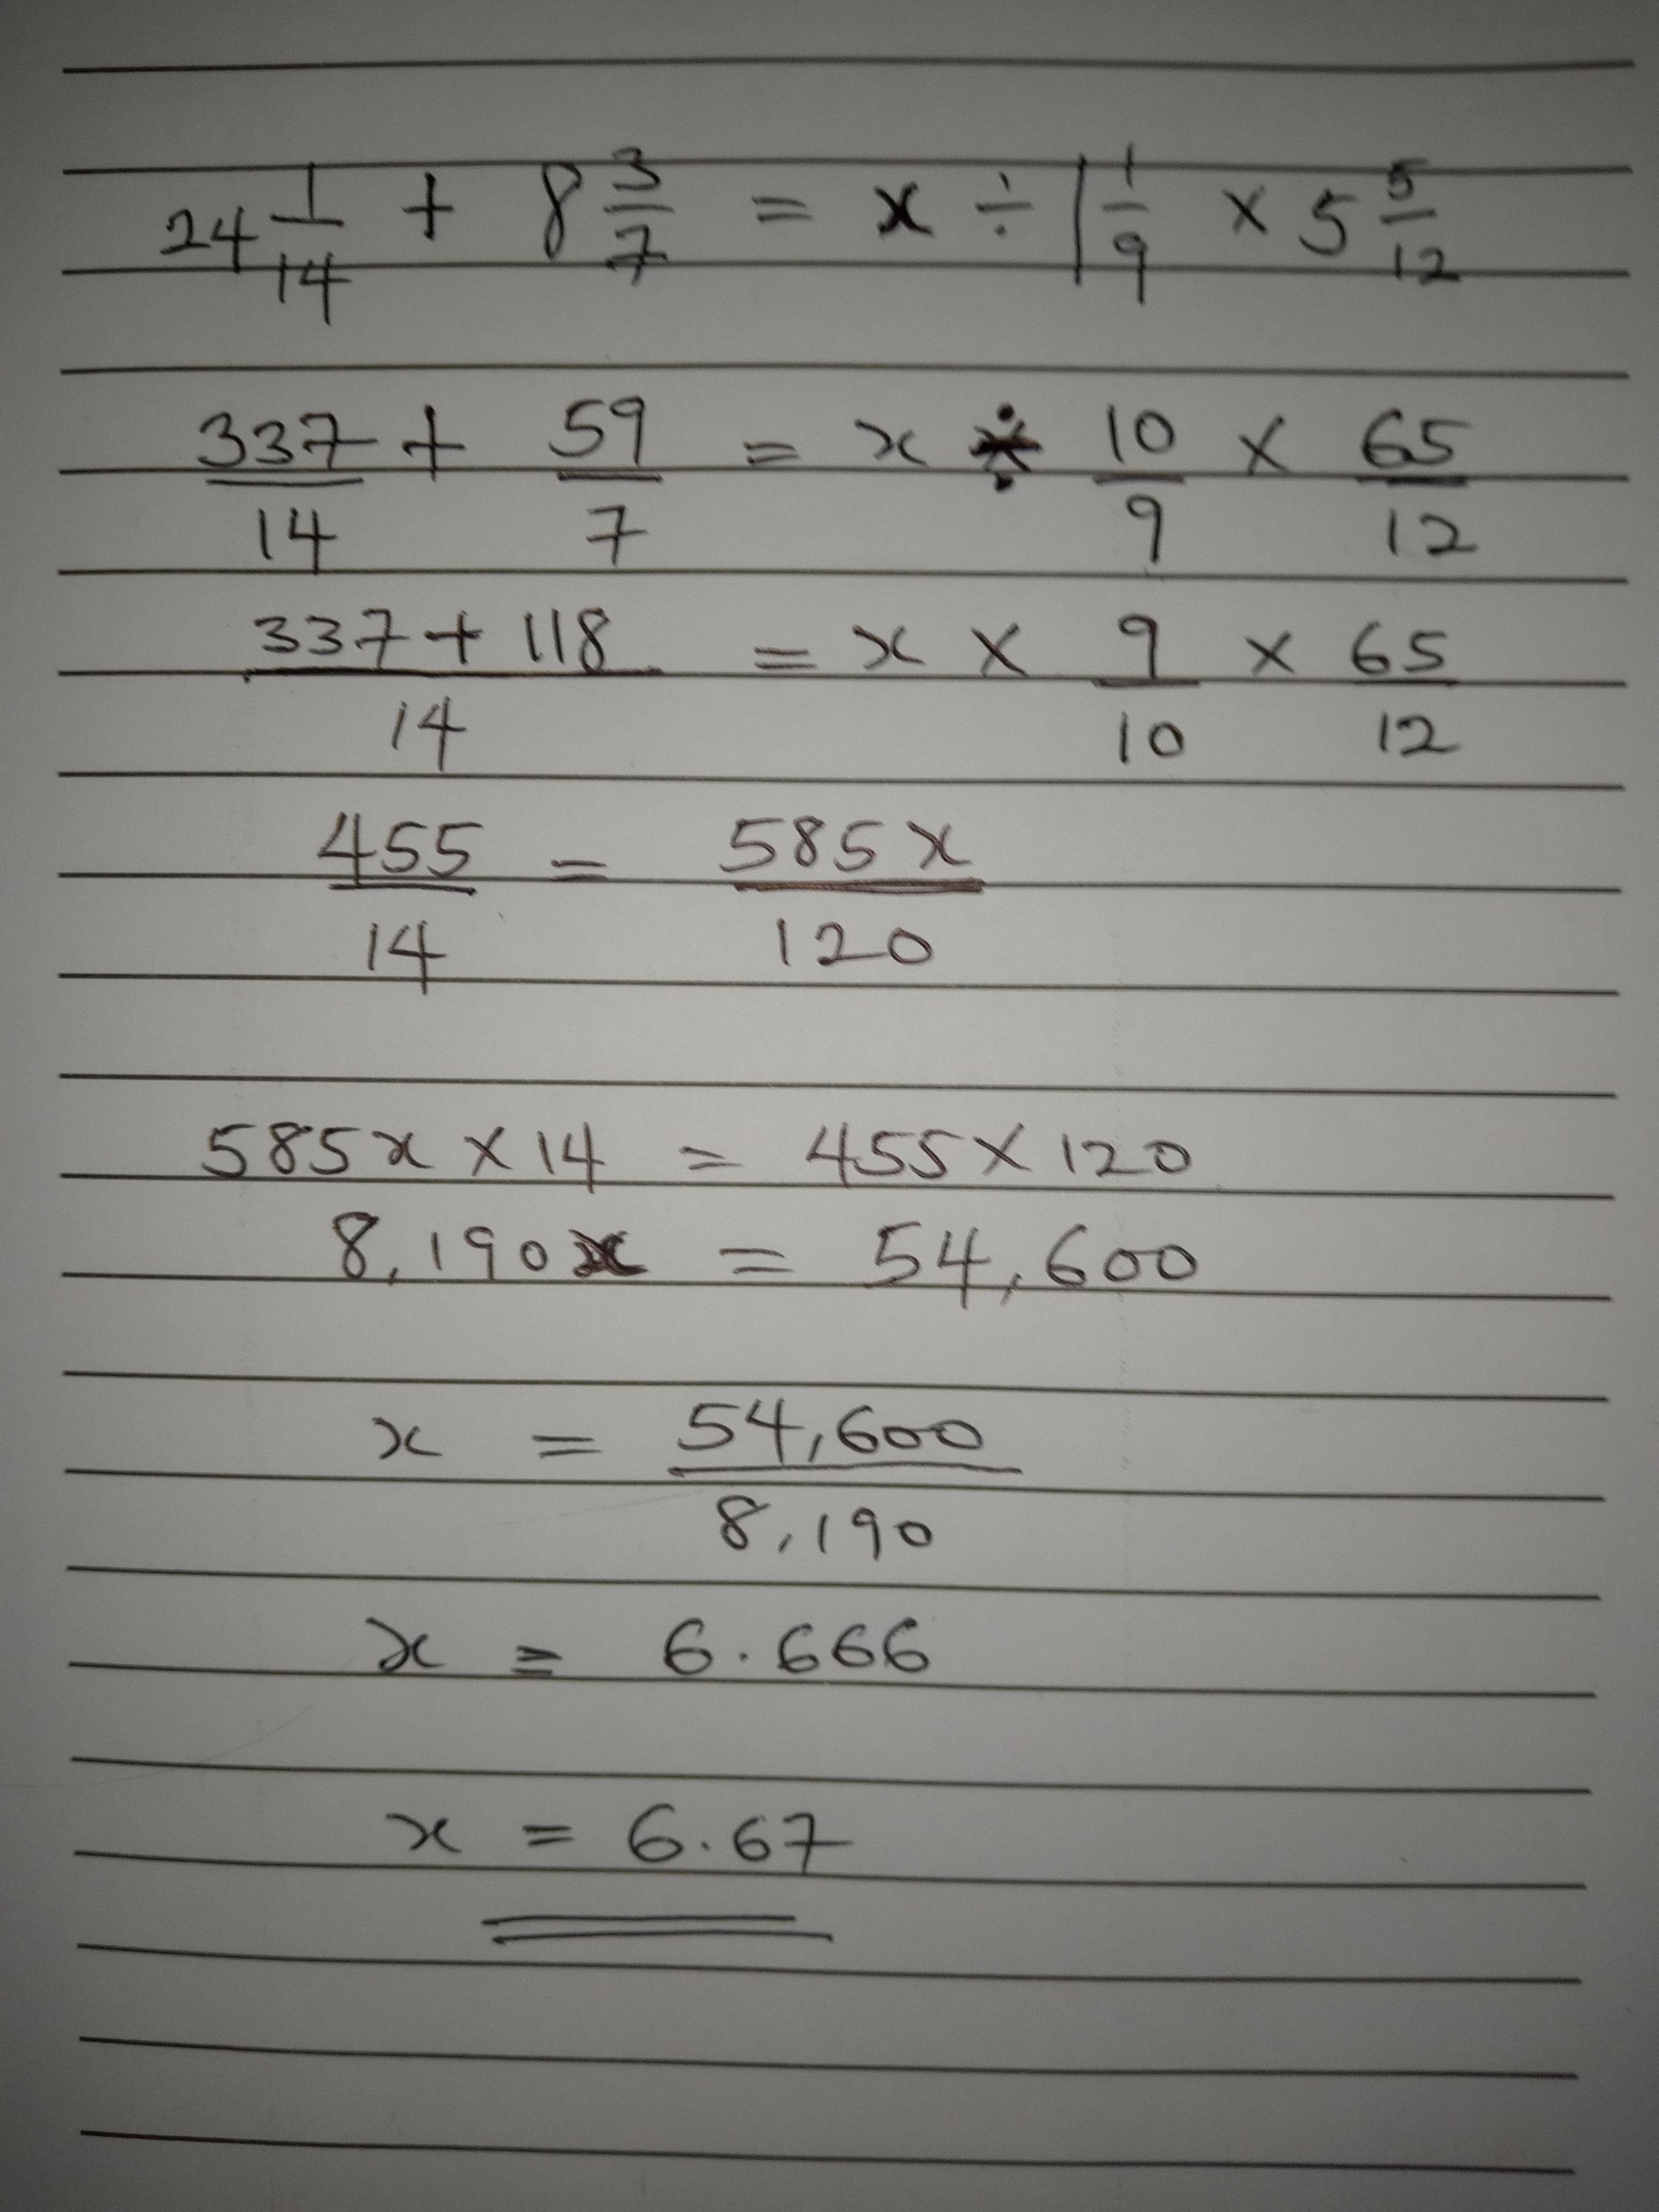 24 1/14 + 8 3/7 = x ÷ 1 1/9 × 5 5/12
337/14 + 59/7 = x ÷ 10/9 × 65/12
337 + 118/14 = x × 9/10 × 65/12
455/14 = 585x/120
585x × 14 = 455 × 120
8,190x = 54,600
x = 54,600/8,190
x = 6.666
x = 6.67